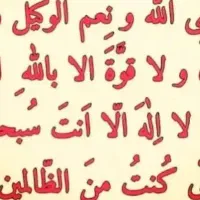 ى الله و نعم الوكيل
و لا قوَّةَ الا بالله
لا إلٰهَ الّا اَنتَ سُبح
كُنتُ مِنَ الظّالمين